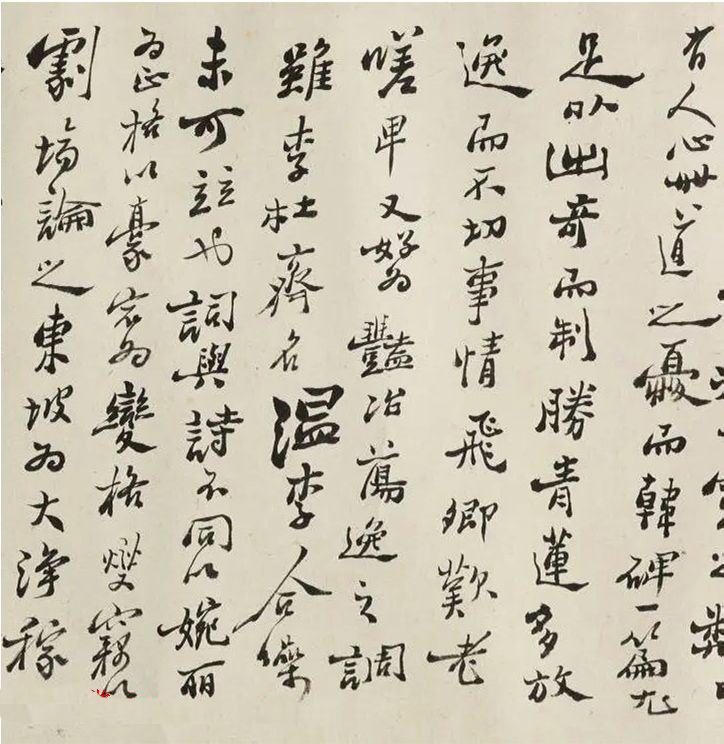 有人心世道之憂而韓碑一篇尤
足以出奇而制勝青蓮多放
逸而不切事情飛卿歎老
嗟卑又好為豔冶蕩逸之調
雖李杜齊名温李合噪
未可並也詞與詩不同以婉丽
為正格以豪宕為變格燮竊以
劇場論之東坡為大淨稼